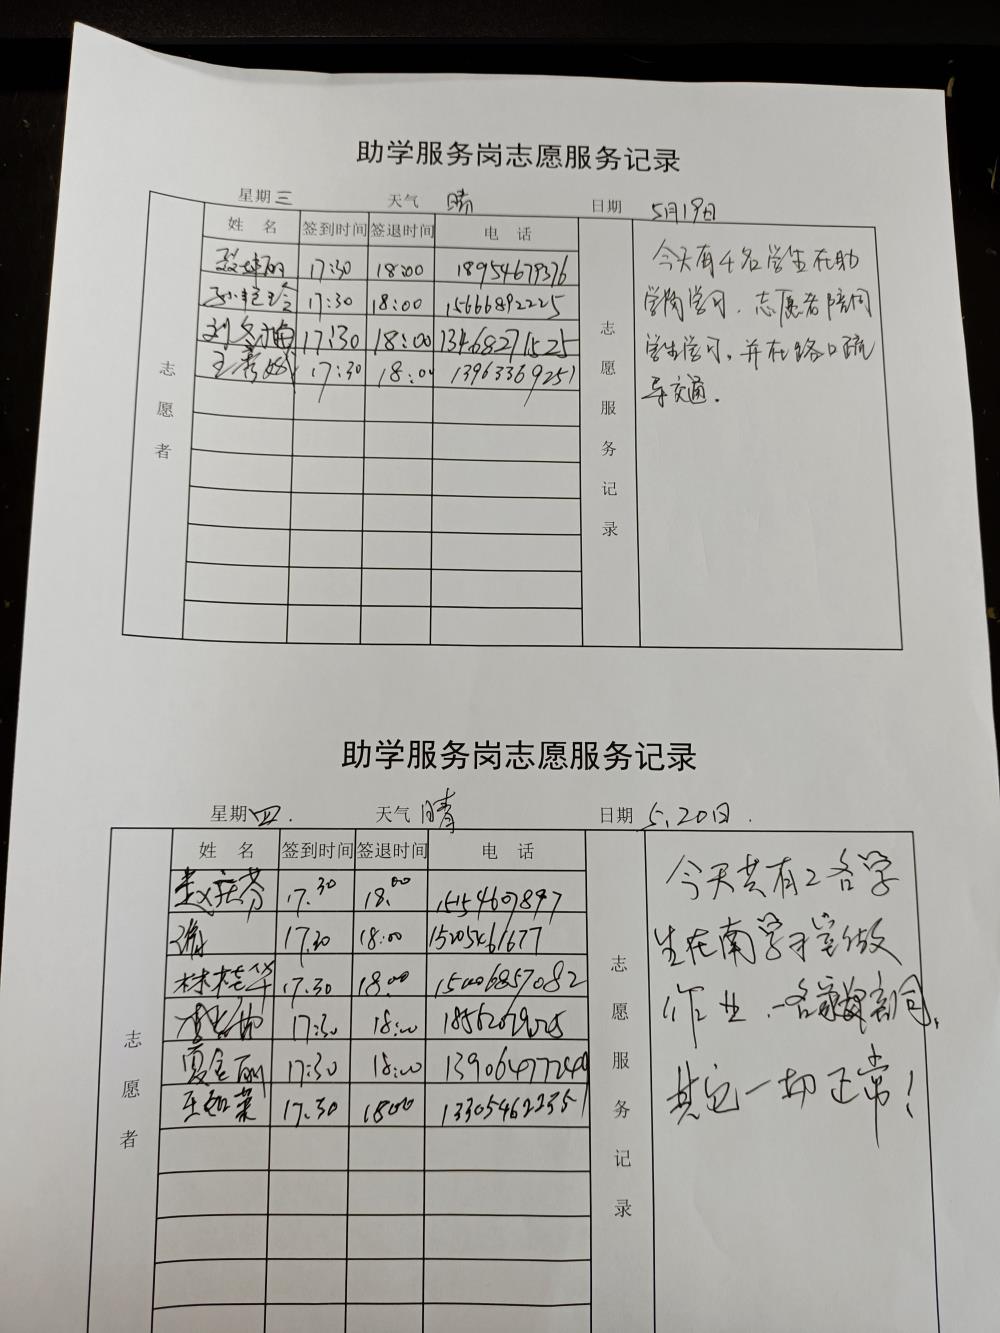 助学服务岗志愿服务记录
星期三 天气 晴 日期 5月19日
姓 名 签到时间 签退时间 电 话
17:30 18:00 18954679376
17:30 18:00 15666892225
刘冬梅 17:30 18:00 13468271525
王秀娥 17:30 18:00 13963369251
志愿者
志愿服务记录
今天有4名学生在助
学岗学习,志愿者陪同
学生学习,并在路口疏
导交通.
助学服务岗志愿服务记录
星期四. 天气 晴 日期 5.20日.
姓 名 签到时间 签退时间 电 话
17.30 18.00 15154607897
17.30 18:00 15205461677
林桂华 17.30 18.00 15006857082
17:30 18:00
夏金丽 17:30 18:00
17.30 18:00 13305462235
志愿者
志愿服务记录
今天共有2名学
生在南学习室做
作业,一名
其它一切正常!